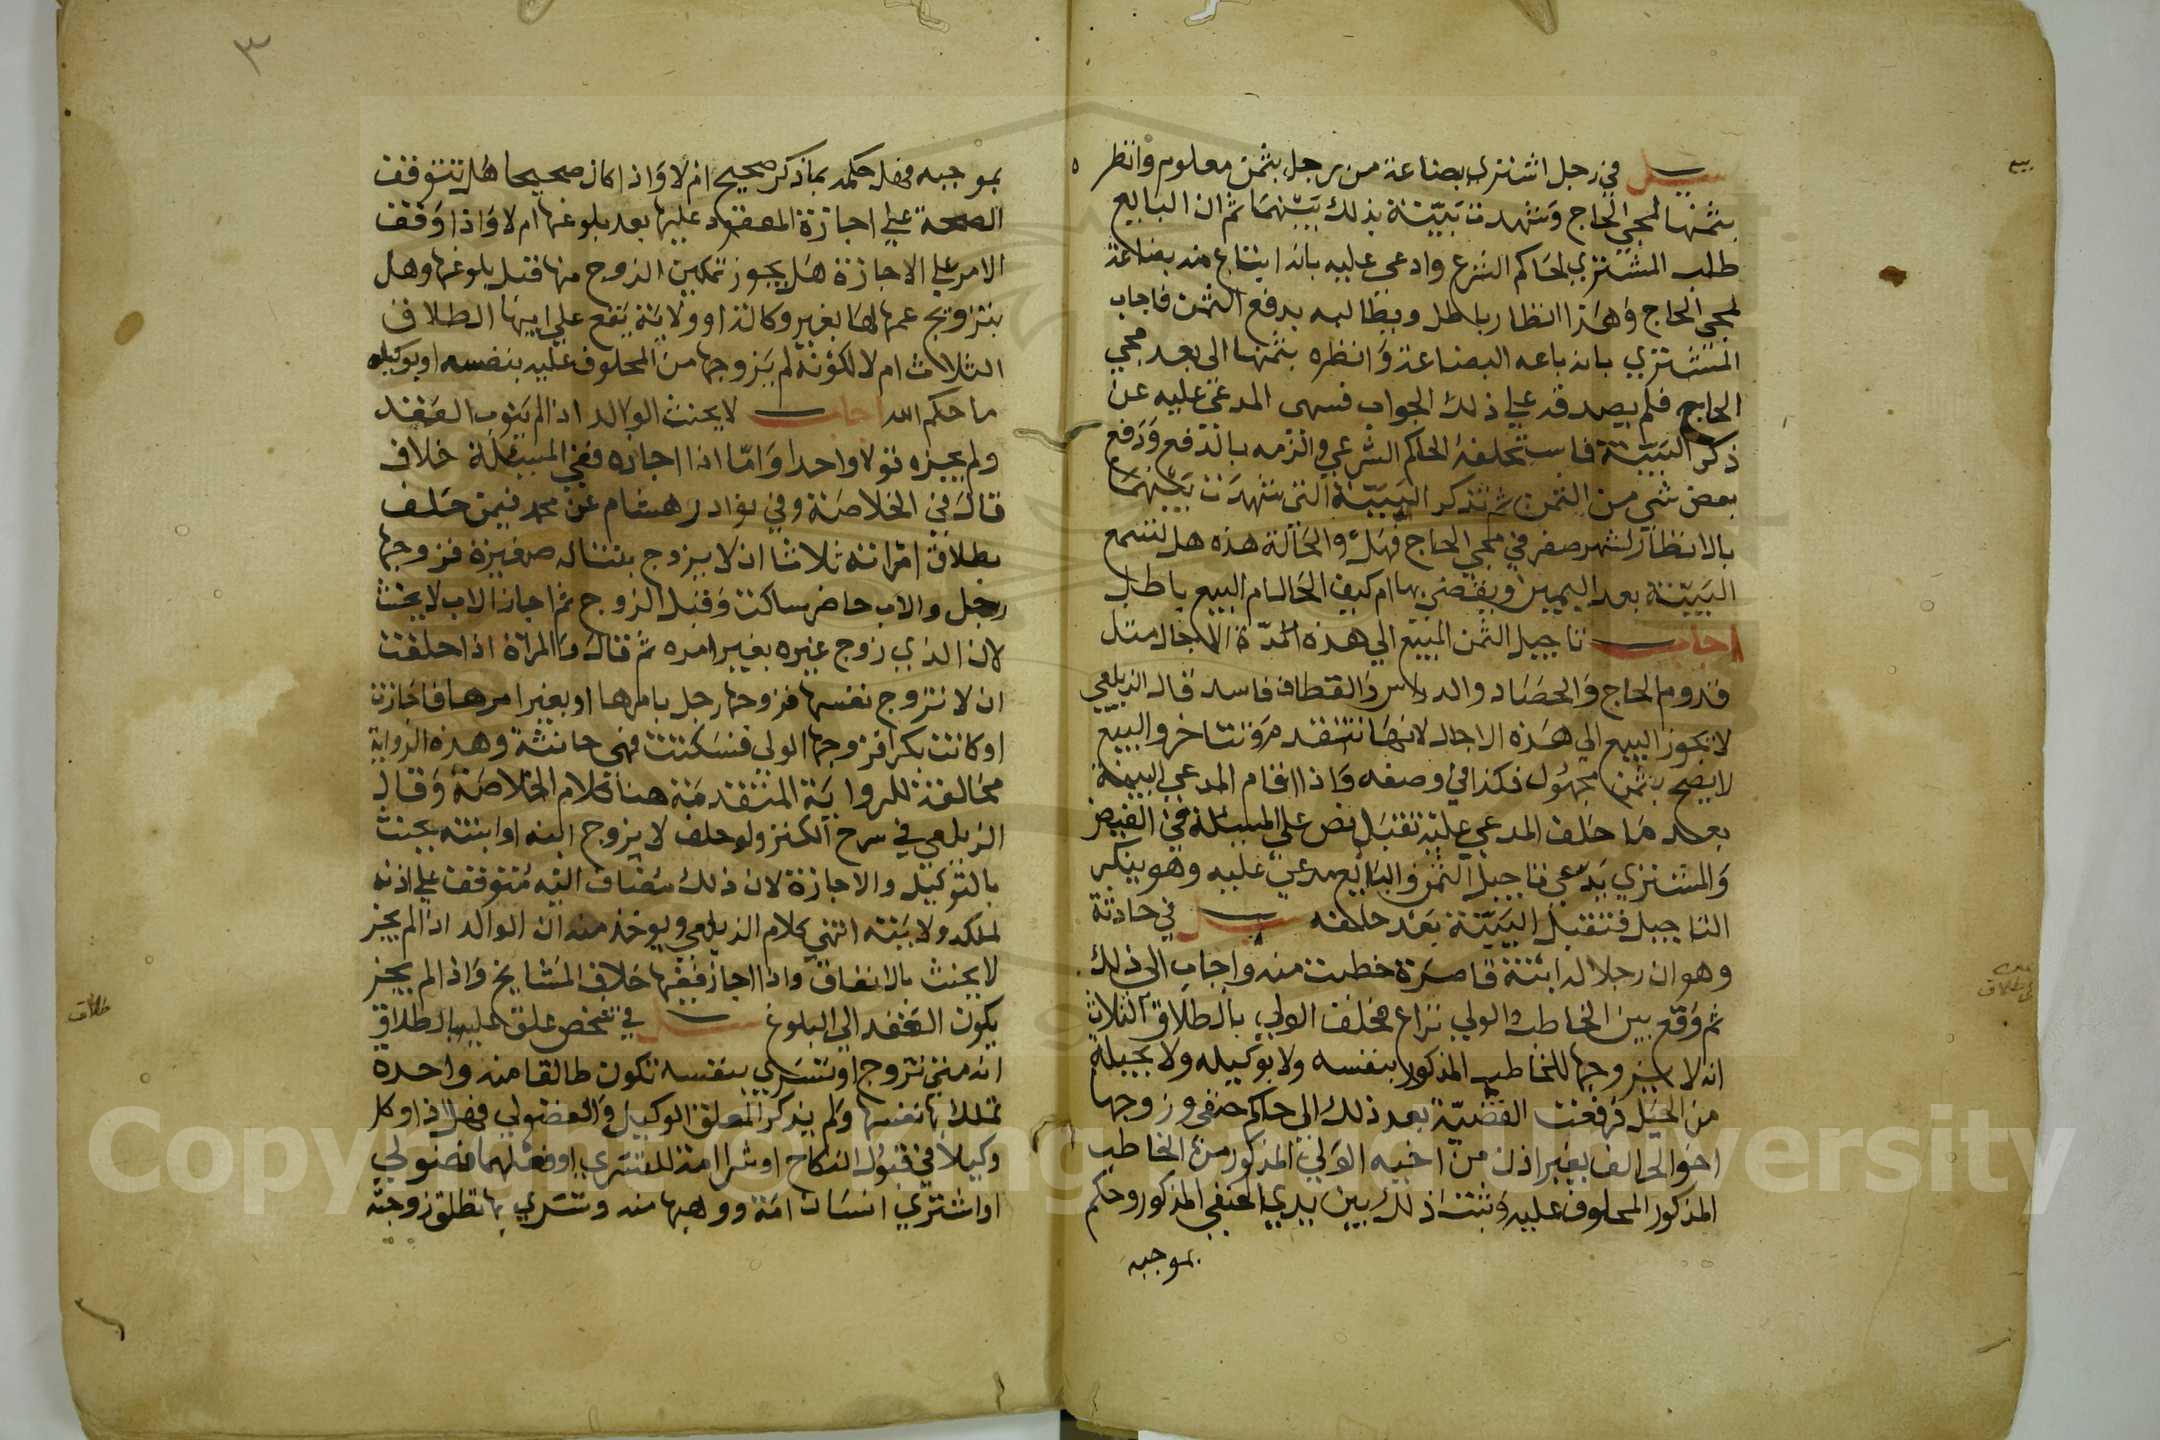 سئل في رجل اشترى بضاعة من رجل بثمن معلوم وانظر
بثمنها لمجي الحاج وشهدت بَيّنة بذلك بَينهمَا ثم ان البَايع
طلب المشتري لحاكم الشرع وادعي عليه بانه ابتاع منه بضاعة
لمجي الحاج وَهَذا انظار باطل ويطالبه بدفع الثمن فاجاب
المشتري بانه باعه البضاعة وَانظره بثمنها الى بعد مجي
الحاج فلم يصدقه علي ذلك الجواب فسهى المدعي عليه عن
ذكر البَيّنة فاستحلفهُ الحاكم الشرعي والزمه بالدفع وَدَفع
بعض شي من الثمن ثم تذكر البَيّنة التي شهدَت بَينهمَا
بالانظار لشهر صفر في مجي الحاج فهَل وَالحَالة هذه هل تسمع
البَيّنة بعد اليمين ويقضي بها ام كيف الحَال ام البيع باطل
اجاب تاجيل الثمن المبيَع الي هذه المدّة الاجال مثل
قدوم الحاج وَالحصَاد والدياس وَالقطاف فاسد قال الزيلعي
لا يجوز البيع الي هَذه الاجال لانهَا تتقدم وَتتاخر والبيَع
لا يصح بثمن مجهُول فكذا في وصفه وَاذا اقام المدعي البينة
بعد مَا حَلف المدعي عليَه تقبَل نص على المسئلة في الفيض
وَالمشتري يَدّعي تاجيل الثمن وَالبَايع مدعي عليه وهو ينكر
التاجيل فتقبَل البَيّنة بَعد حلفه سئل في حادثة
وهو ان رجلا له ابنَة قاصرَة خطبت منه واجاب الى ذلك
ثم وَقع بين الخاطب والولي نزاع فحلف الولي بالطلاق الثلاث
انه لا يزوجها للخاطب المذكور لا بنفسه ولا بوكيله ولا بحيلة
من الحيَل فرفعت القضيّة بعد ذلك الي حاكم حنفي وزوجها
اخو الحالف بغير اذن من اخيه الوَلي المذكور من الخاطب
المذكور المحلوف عليه وَثبت ذلك بين يدي الحنفي المذكور وحكم
بموجبه
بيع
٣
بموجبه فهل حكمه بماذكر صحيح ام لا وَاذا كان صحيحا هَل تتوقف
الصحة علي اجازة المعقود عليها بعد بلوغها ام لا وَاذا وَقف
الامر علي الاجازة هَل يجوز تمكين الزوج منها قبل بلوغها وهل
بتزويج عمها لهَا بغير وكالة او ولاية يَقع علي ابيهَا الطلاق
الثلاث ام لا لكونه لم يَزوجها من المحلوف عليه بنفسه او بوكيله
ما حكم الله اجاب لا يحنث الوالد اذا لم يَنوب العَقد
ولم يجيزه قولا واحدا وَامّا اذا اجازه ففي المسئلة خلاف
قال في الخلاصَة وفي نوادر هشام عن محمد فيمن حَلف
بطلاق امرَاته ثلاثا ان لا يزوج بنتاله صغيرة فزوجها
رجل والاب حاضر ساكت وَقبَل الزوج ثم اجاز الاب لا يحنث
لان الذي زوج غيره بغير امره ثم قال وَالمراة اذا حلفت
ان لا تزوج نفسها فزوجها رجل بامرها او بغير امرها فاجَازت
او كانت بكرا فزوجها الولي فسَكتت فهي حانثة وَهذه الرواية
مخالفة للروايَة المتقدمَة هنا كلام الخلاصَة وَقال
الزيلعي في شرح الكنز ولو حلف لا يزوج ابنه او ابنته يحنث
بالتوكيَل والاجازة لان ذلك مضَاف اليَه مُتوقف علي اذنه
لملكه ولايَته انتهي كلام الزيلعي ويوخذ منه ان الوالد اذا لم يجز
لا يحنث بالاتفاق واذا اجاز ففيها خلاف المشَايخ وَاذا لم يجز
يكون العَقد الي البلوغ سئل في شخص علق عليه بالطلاق
انه متي تزوج او تسَري بنفسه تكون طالقا منه واحدة
تملك بها نفسها وَلم يذكر المعلق الوكيل وَالفضولي فهل اذا وكل
وكيلا في قبُول النكاح او شرا امة للتسَري او فعَلهما فضولي
او اشتري انسَان امَة ووهبها منه وتسَري بها تطلق زوجته
طلاق